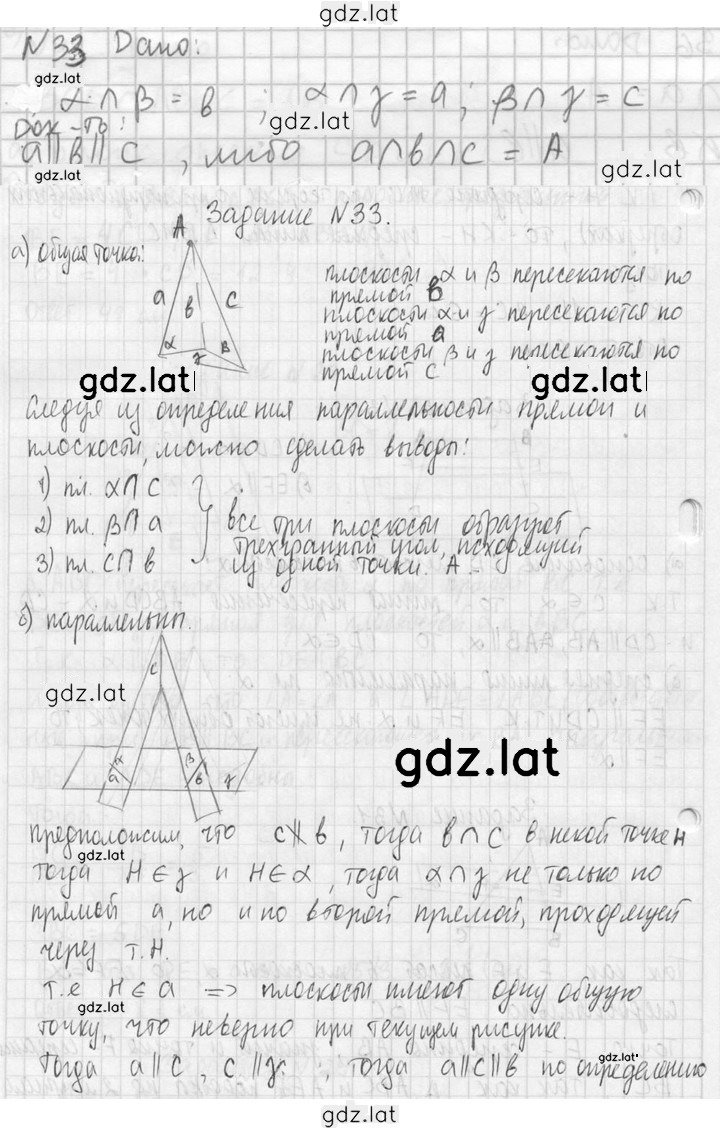 gdz.lat
N33 Дано:
gdz.lat
α∩β = в ; α∩γ = a; β∩γ = c
gdz.lat
Док-ть:
a∥в∥c , либо a∩b∩c = A
gdz.lat
gdz.lat
Задание N33.
а) Общая точка:
A
a
в
c
α
γ
β
плоскости α и β пересекаются по
прямой в
плоскости α и γ пересекаются по
прямой a
плоскости β и γ пересекаются по
прямой c
gdz.lat
gdz.lat
Следуя из определения параллельности прямой и
плоскости, можно сделать выводы:
1) пл. α∩c
2) пл. β∩a
3) пл. c∩в
все три плоскости образуют
трехгранный угол, исходящий
из одной точки. A -
б) параллельны.
c
gdz.lat
α
a
β
в
γ
gdz.lat
предположим, что c∦в, тогда в∩c в некой точке H
gdz.lat
тогда H∈γ и H∈α, тогда α∩γ не только по
прямой a, но и по второй прямой, проходящей
через т.H.
gdz.lat
т.е H∈a => плоскости имеют одну общую
gdz.lat
точку, что неверно при текущем рисунке.
gdz.lat
Тогда a∥c, c∥γ ; тогда a∥c∥в по определению
gdz.lat